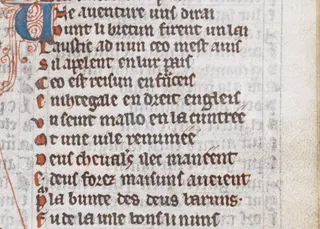 Une aventure vus dirai
Dunt li bretun firent un lai
Laustic ad nun ceo mest avis
Si lapelent en lur pais
Ceo est reisun en franceis
E nihtegale en dreit engleis
En seint mallo en la cuntree
Ot une vile renumee
Deus chevalers ilec maneent
E deus forez maisuns aveient
Pur la bunte des deus baruns.
Fu de la vile bons li nuns